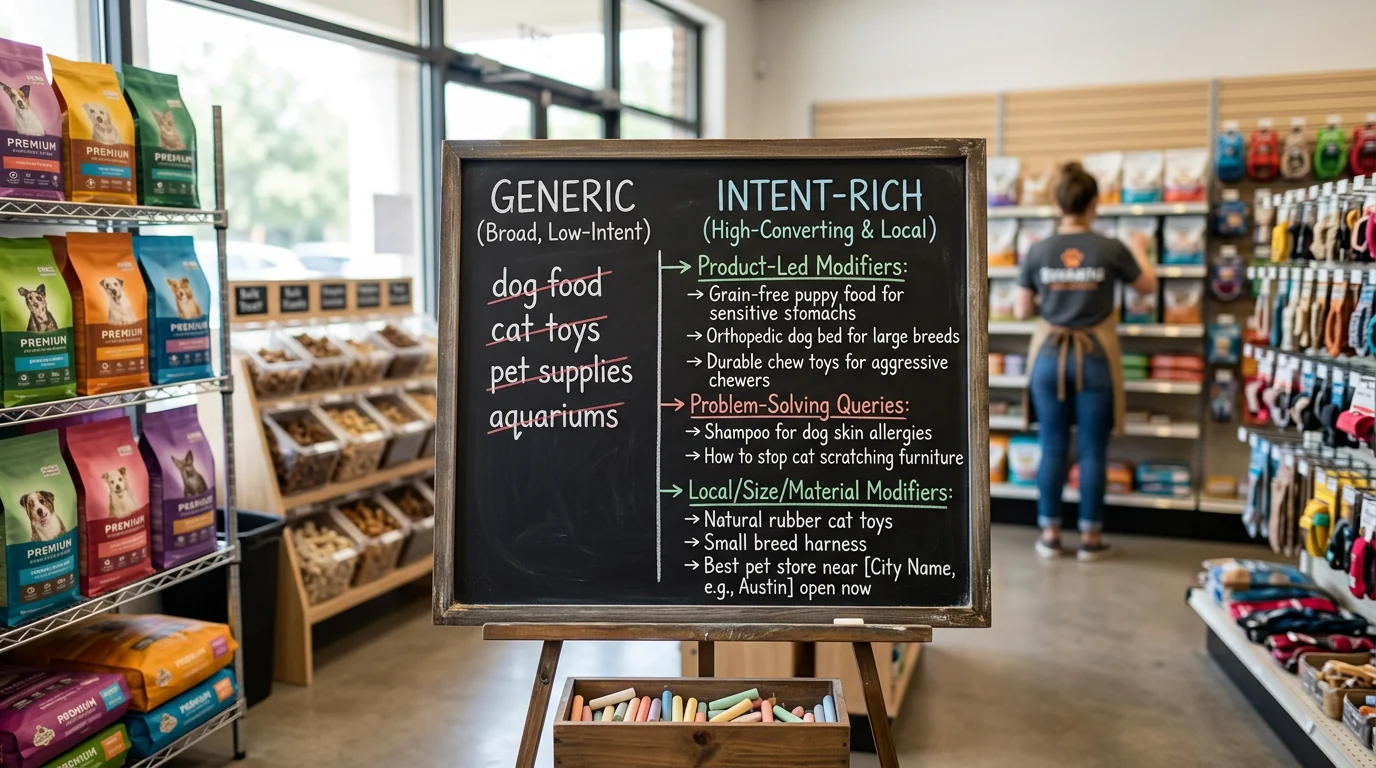 GENERIC
(Broad, Low-Intent)
dog food
cat toys
pet supplies
aquariums
INTENT-RICH
(High-Converting & Local)
Product-Led Modifiers:
→ Grain-free puppy food for
sensitive stomachs
→ Orthopedic dog bed for large breeds
→ Durable chew toys for aggressive
chewers
Problem-Solving Queries:
→ Shampoo for dog skin allergies
→ How to stop cat scratching furniture
Local/Size/Material Modifiers:
→ Natural rubber cat toys
→ Small breed harness
→ Best pet store near [City Name,
e.g., Austin] open now
PREMIUM
PREMIUM
PREMIUM
PREMIUM
PREMIUM
PREMIUM
PREMIUM
PREMIUM
PREMIUM
PREMIUM